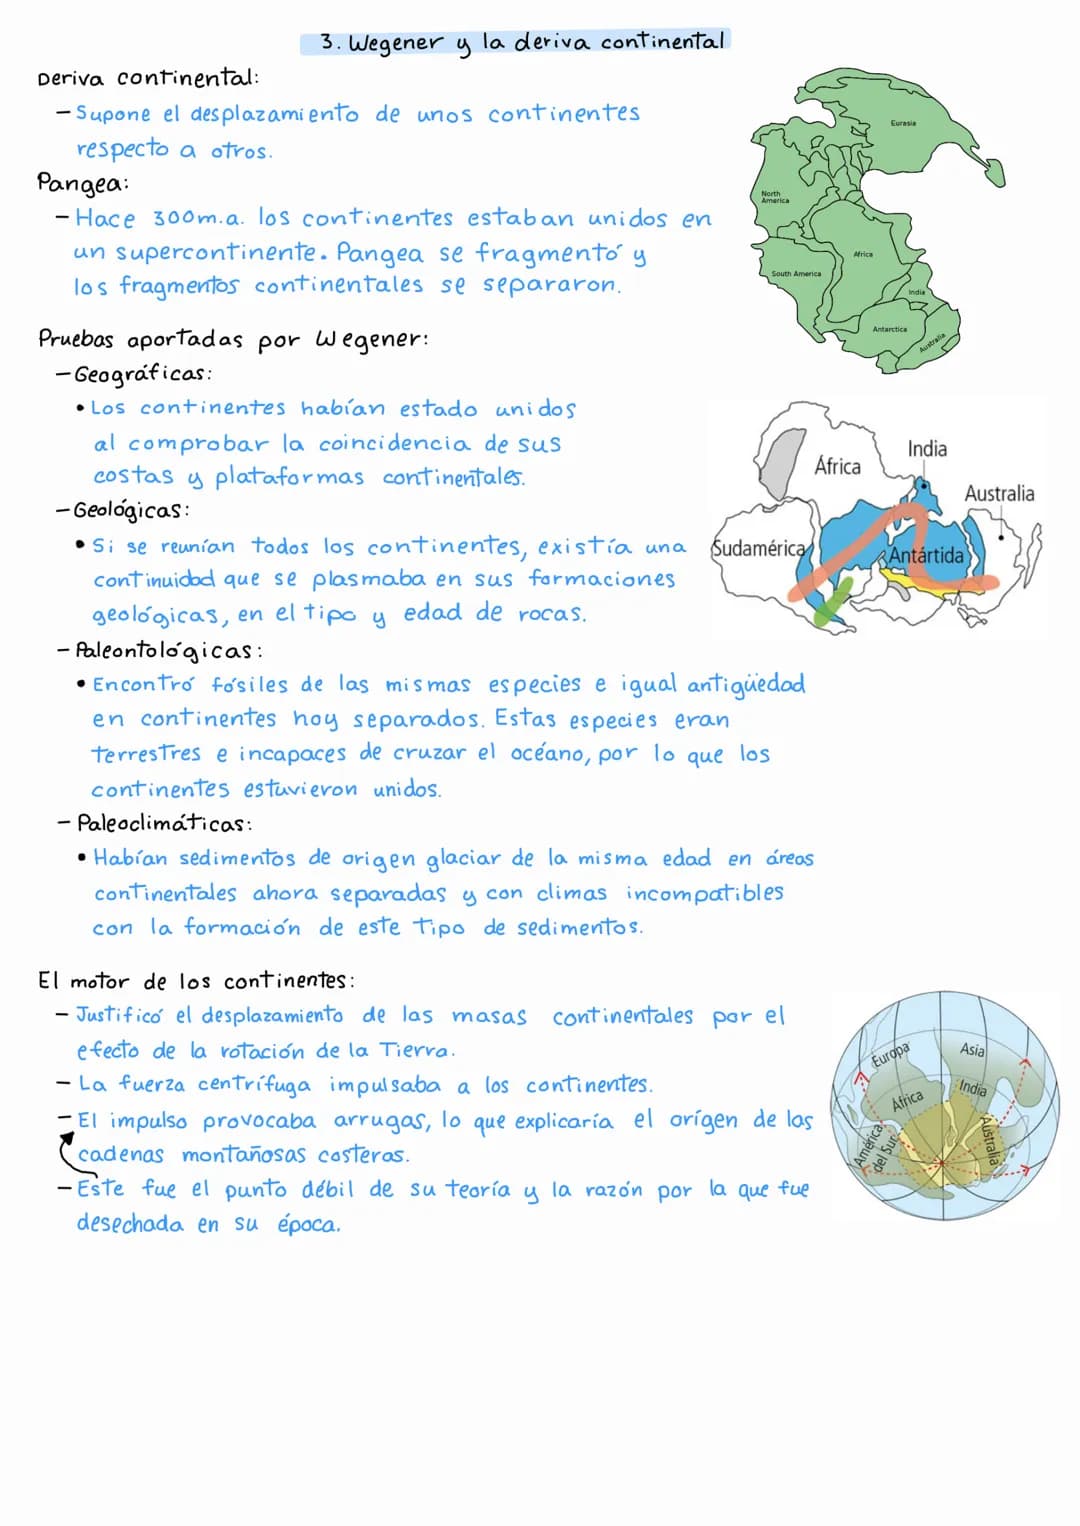 3. Wegener y la deriva continental
Deriva continental:
- Supone el desplazamiento de unos continentes
respecto a otros.
Pangea:
- Hace 300m.a. los continentes estaban unidos en
un supercontinente. Pangea se fragmentó y
los fragmentos continentales se separaron.
Eurasia
North
America
Africa
South America
India
Antarctica
Australia
Pruebas aportadas por Wegener:
- Geográficas:
• Los continentes habían estado unidos
al comprobar la coincidencia de sus
costas y plataformas continentales.
- Geológicas:
• Si se reunían todos los continentes, existía una
continuidad que se plasmaba en sus formaciones
geológicas, en el tipo y edad de rocas.
África
India
Australia
Sudamérica
Antártida
- Paleontológicas:
• Encontró fósiles de las mismas especies e igual antigüedad
en continentes hoy separados. Estas especies eran
terrestres e incapaces de cruzar el océano, por lo que los
continentes estuvieron unidos.
- Paleoclimáticas:
• Habían sedimentos de origen glaciar de la misma edad en áreas
continentales ahora separadas y con climas incompatibles
con la formación de este tipo de sedimentos.
El motor de los continentes:
- Justificó el desplazamiento de las masas continentales por el
efecto de la rotación de la Tierra.
- La fuerza centrífuga impulsaba a los continentes.
- El impulso provocaba arrugas, lo que explicaría el orígen de las
cadenas montañosas costeras.
- Este fue el punto débil de su teoría y la razón por la que fue
desechada en su época.
Europa
Asia
África
India
América
del Sur
Australia